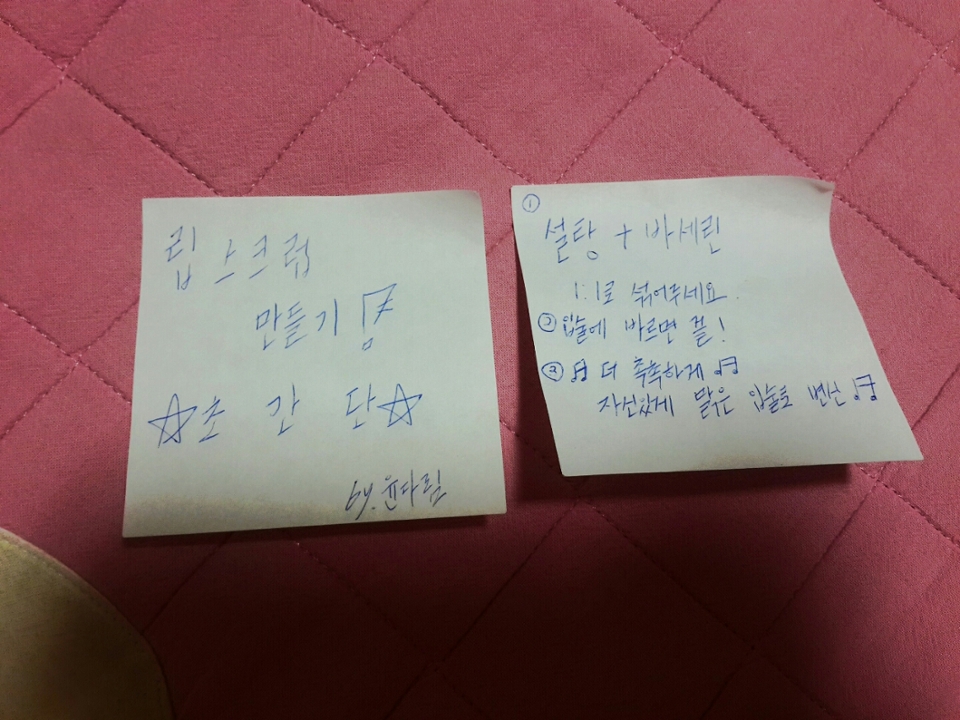 립 스크럽
만들기
☆초 간 단☆
by. 윤다림
①
설탕 + 바세린
1:1로 섞어주세요.
② 입술에 바르면 끝!
③ ♫ 더 촉촉하게 ♫
자신있게 맑은 입술로 변신 ♫